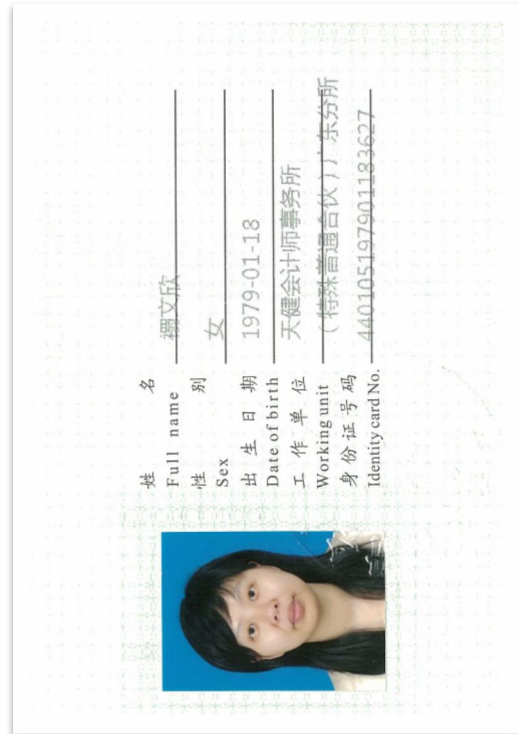 姓 名 禤文欣
Full name
性 别 女
Sex
出 生 日 期 1979-01-18
Date of birth
工 作 单 位 天健会计师事务所
Working unit （特殊普通合伙）广东分所
身 份 证 号 码 440105197901183627
Identity card No.